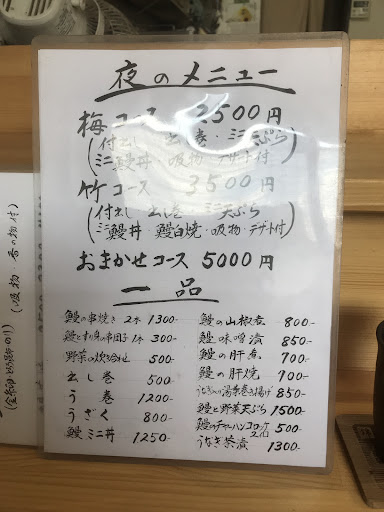 夜のメニュー
梅コース 2500円
(付出し 出し巻 ミニ天ぷら
ミニ鰻丼・吸物・デザート付)
竹コース 3500円
(付出し 出し巻 ミニ天ぷら
ミニ鰻丼・鰻白焼・吸物・デザート付)
おまかせコース 5000円
一品
鰻の串焼き 2本 1300-
300-
野菜の炊き合せ 500-
出し巻 500-
う巻 1200-
うざく 800-
鰻ミニ丼 1250-
鰻の山椒煮 800-
鰻味噌漬 850-
鰻の肝煮 700-
鰻の肝焼 700-
うなぎの湯葉巻き揚げ 850-
鰻と野菜天ぷら 1500-
鰻のチャーハンコロッケ 2ヶ 500-
うなぎ茶漬 1300-
(吸物 香の物付)